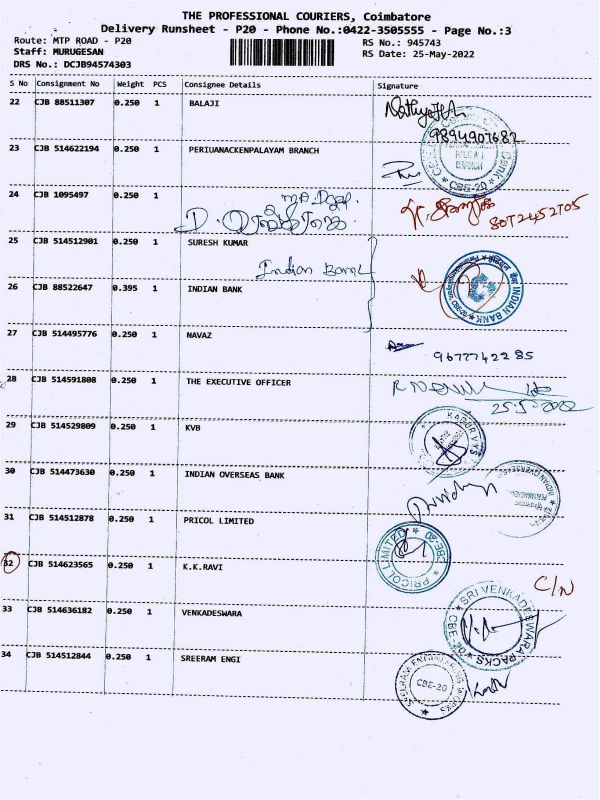 THE PROFESSIONAL COURIERS, Coimbatore
Delivery Runsheet - P20 - Phone No.:0422-3505555 - Page No.:3
Route: MTP ROAD - P20 RS No.: 945743
Staff: MURUGESAN RS Date: 25-May-2022
DRS No.: DCJB94574303
S No Consignment No Weight PCS Consignee Details Signature
22 CJB 88511307 0.250 1 BALAJI
9894907682
23 CJB 514622194 0.250 1 PERIUANACKENPALAYAM BRANCH
CBE-20
24 CJB 1095497 0.250 1
8072452705
25 CJB 514512901 0.250 1 SURESH KUMAR
Indian Bank
26 CJB 88522647 0.395 1 INDIAN BANK
INDIAN BANK
27 CJB 514495776 0.250 1 NAVAZ
9677742285
28 CJB 514591808 0.250 1 THE EXECUTIVE OFFICER
25-5-2022
29 CJB 514529809 0.250 1 KVB
30 CJB 514473630 0.250 1 INDIAN OVERSEAS BANK
31 CJB 514512878 0.250 1 PRICOL LIMITED
PRICOL LIMITED CBE-20
32 CJB 514623565 0.250 1 K.K.RAVI
C/N
33 CJB 514636182 0.250 1 VENKADESWARA
SRI VENKADESWARA PACKS CBE-20
34 CJB 514512844 0.250 1 SREERAM ENGI
CBE-20